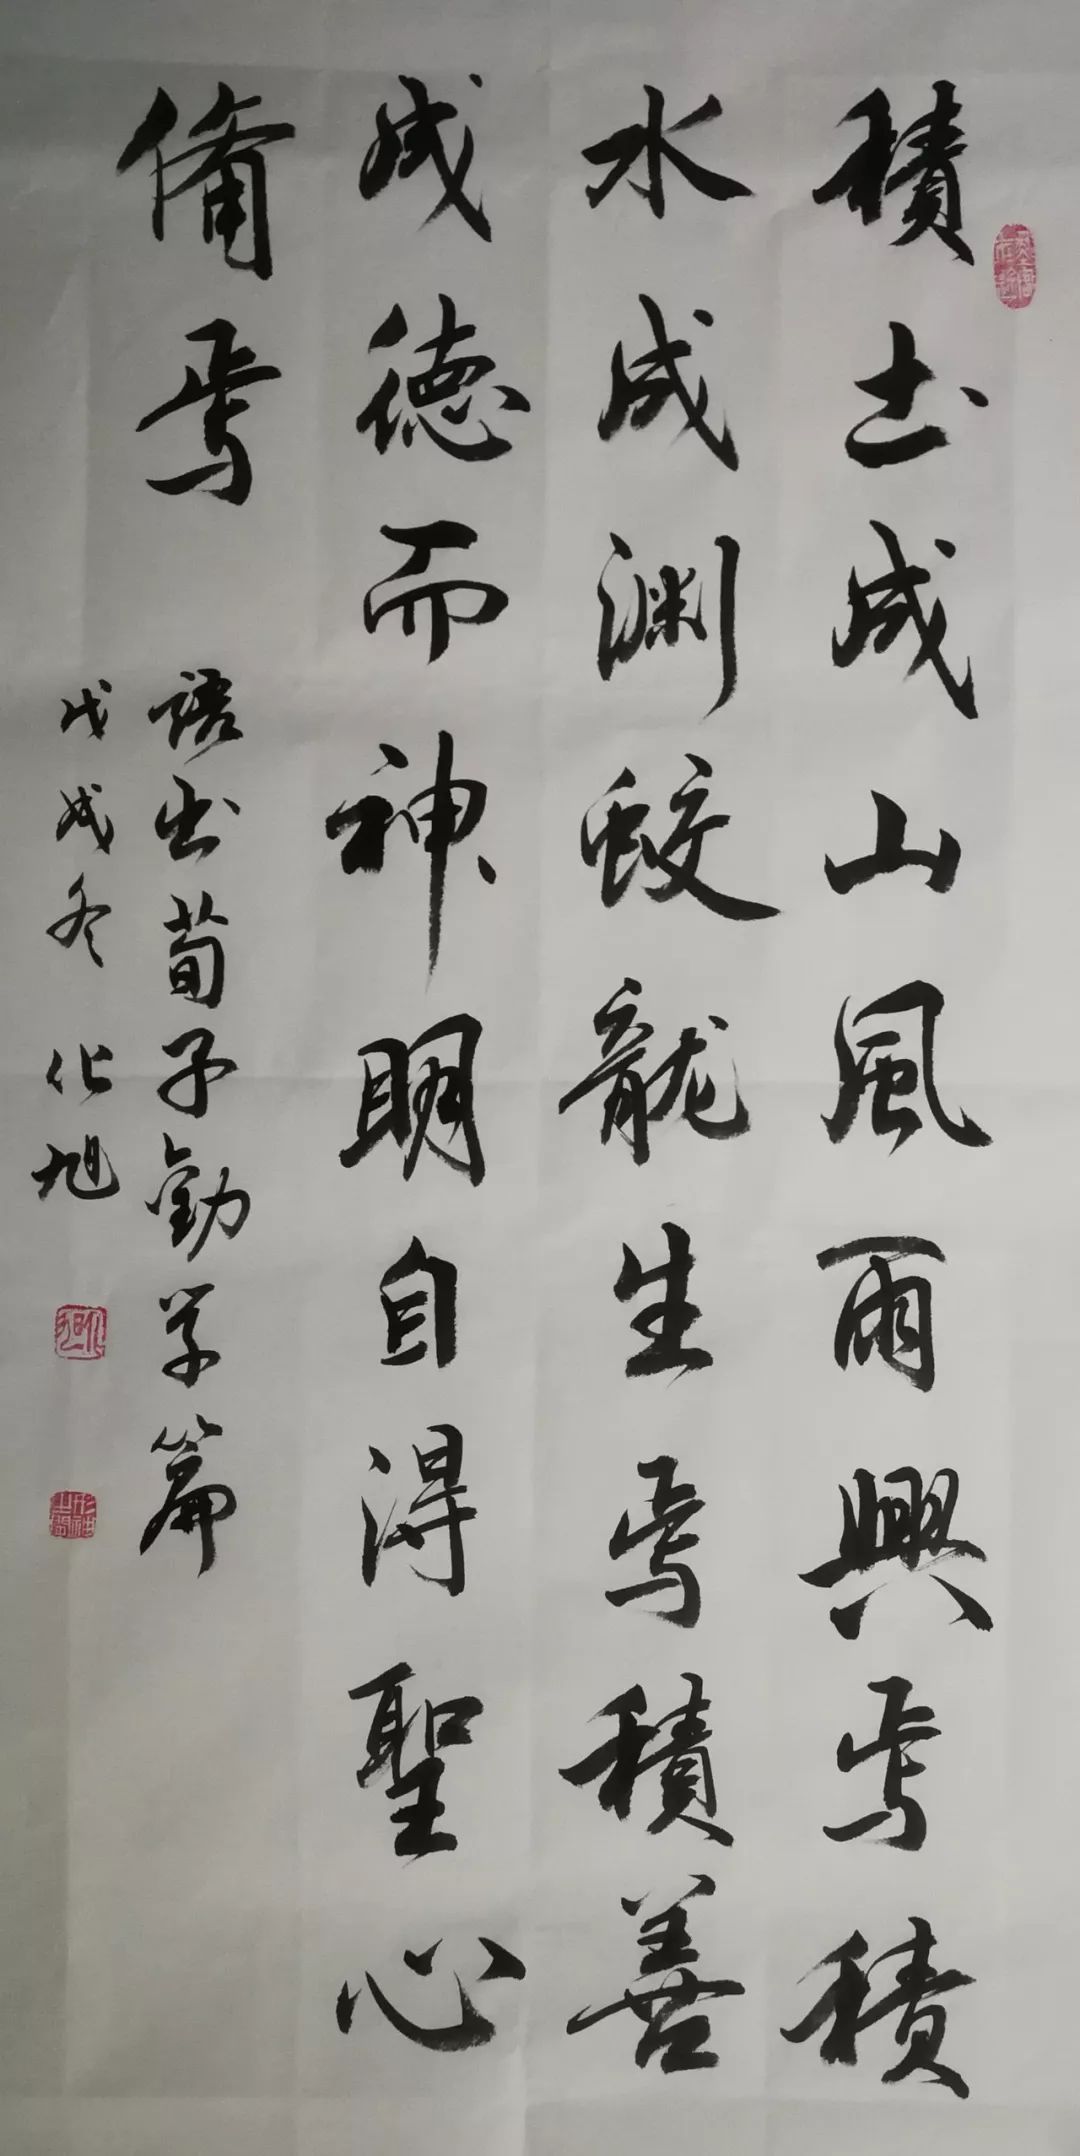 積土成山風雨興焉積
水成渊蛟龍生焉積善
成德而神明自得聖心
備焉
語出荀子勸学篇
戊戌冬 化旭